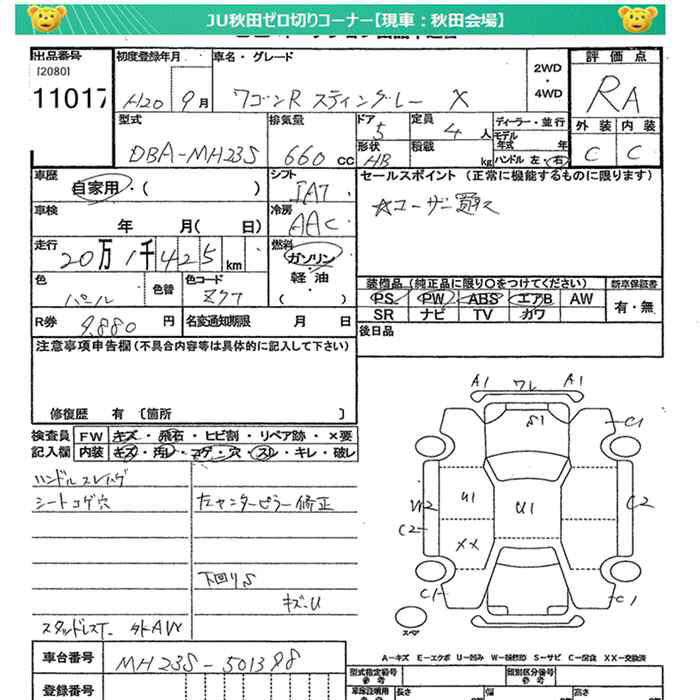 JU秋田ゼロ切りコーナー【現車：秋田会場】
出品番号 初度登録年月 車名・グレード 2WD・4WD 評価点
[2080]
11017 H20 9月 ワゴンR スティングレー X RA
型式 排気量 ドア 5 定員 4人 ディーラー・並行 外装 内装
DBA-MH23S 660cc 形状 HB 積載 kg モデル年式 年 ハンドル 左・右 C C
車歴 自家用・( ) シフト IAT セールスポイント (正常に機能するものに限ります)
車検 年 月( 日) 冷房 AAC ☆ユーザー買取
走行 20万1千425km 燃料 ガソリン・軽油・( )
色 パール 色替 色コード Z7T 装備品 (純正品に限り○をつけてください) 新車保証書
PS PW ABS エアB AW 有・無
SR ナビ TV カワ
R券 9,880円 名変通知期限 月 日 後日品
注意事項申告欄(不具合内容等は具体的に記入して下さい)
修復歴 有 〔箇所 〕
検査員 FW キズ・飛石・ヒビ割・リペア跡・×要
記入欄 内装 キズ・汚レ・コゲ・穴・スレ・キレ・破レ
ハンドルスレ
シートコゲ穴 左センターピラー修正
下回りS
キズ・U
スタッドレスT 外AW
A1 ワレ A1
S1 C1
U2 U1 U1 C2
C2 XX
C1 C1
スペア
A-キズ E-エクボ U-凹み W-補修跡 S-サビ C-腐食 XX-交換済
車台番号 MH23S-501388
登録番号
型式指定番号 参考 類別区分番号 参考
車庫証明用 参考 長さ 幅 高さ